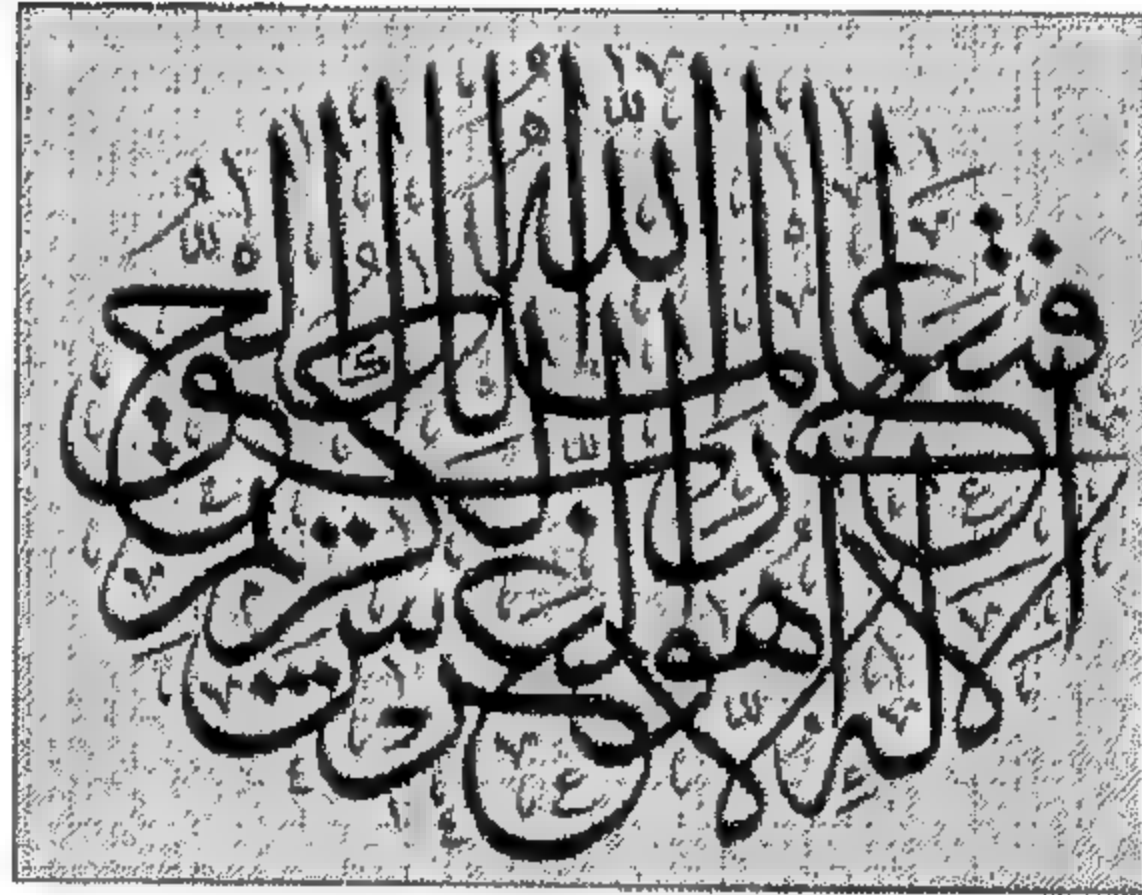 فتعالى الله الملك الحق لا اله الا هو رب العرش الكريم